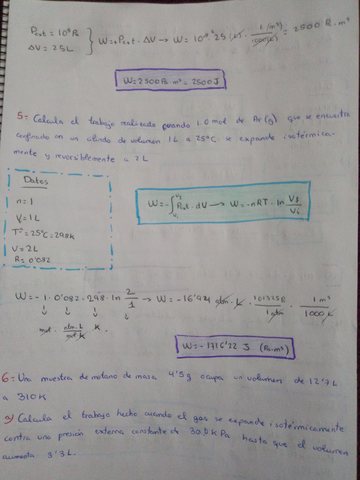 Pext = 10⁵ Pa
ΔV = 25 L
W = Pext · ΔV → W = 10⁵ · 25 (L) · 1 (m³) / 1000 (L) = 2500 Pa · m³
W = 2500 Pa · m³ = 2500 J
5.- Calcula el trabajo realizado cuando 1.0 mol de Ar (g) que se encuentra
confinado en un cilindo de volumen 1 L a 25°C se expande isotérmica-
mente y reversiblemente a 2 L
Datos
n = 1
V = 1 L
Tª = 25°C = 298 K
V = 2 L
R = 0'082
W = - ∫ Pext · dV → W = -nRT · ln Vf / Vi
W = -1 · 0'082 · 298 · ln 2/1 → W = -16'94 atm · L · 101325 / 1 atm · 1 m³ / 1000 L
mol · atm · L / mol · K · K
W = -1716'22 J (Pa·m³)
6.- Una muestra de metano de masa 4'5 g ocupa un volumen de 12'7 L
a 310 K
a) Calcula el trabajo hecho cuando el gas se expande isotérmicamente
contra una presión externa constante de 30.0 kPa hasta que el volumen
aumenta 3'3 L.